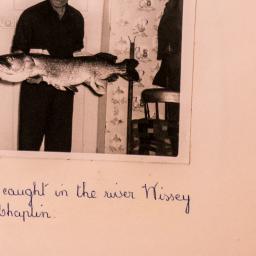 caught in the river Wissey
Chaplin.